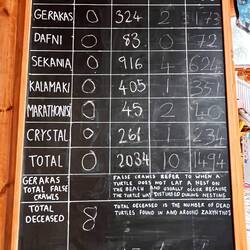 GERAKAS 0 324 2 3173
DAFNI 0 83 0 72
SEKANIA 0 916 4 624
KALAMAKI 0 405 1
MARATHONISI 0 45 2
CRYSTAL 0 261 234
TOTAL 0 2034 10 1494
GERAKAS TOTAL FALSE CRAWLS
FALSE CRAWLS REFER TO WHEN A
TURTLE DOES NOT LAY A NEST ON
THE BEACH AND USUALLY OCCUR BECAUSE
THE TURTLE WAS DISTURBED DURING NESTING
TOTAL DECEASED 8
TOTAL DECEASED IS THE NUMBER OF DEAD
TURTLES FOUND IN AND AROUND ZAKYNTHOS